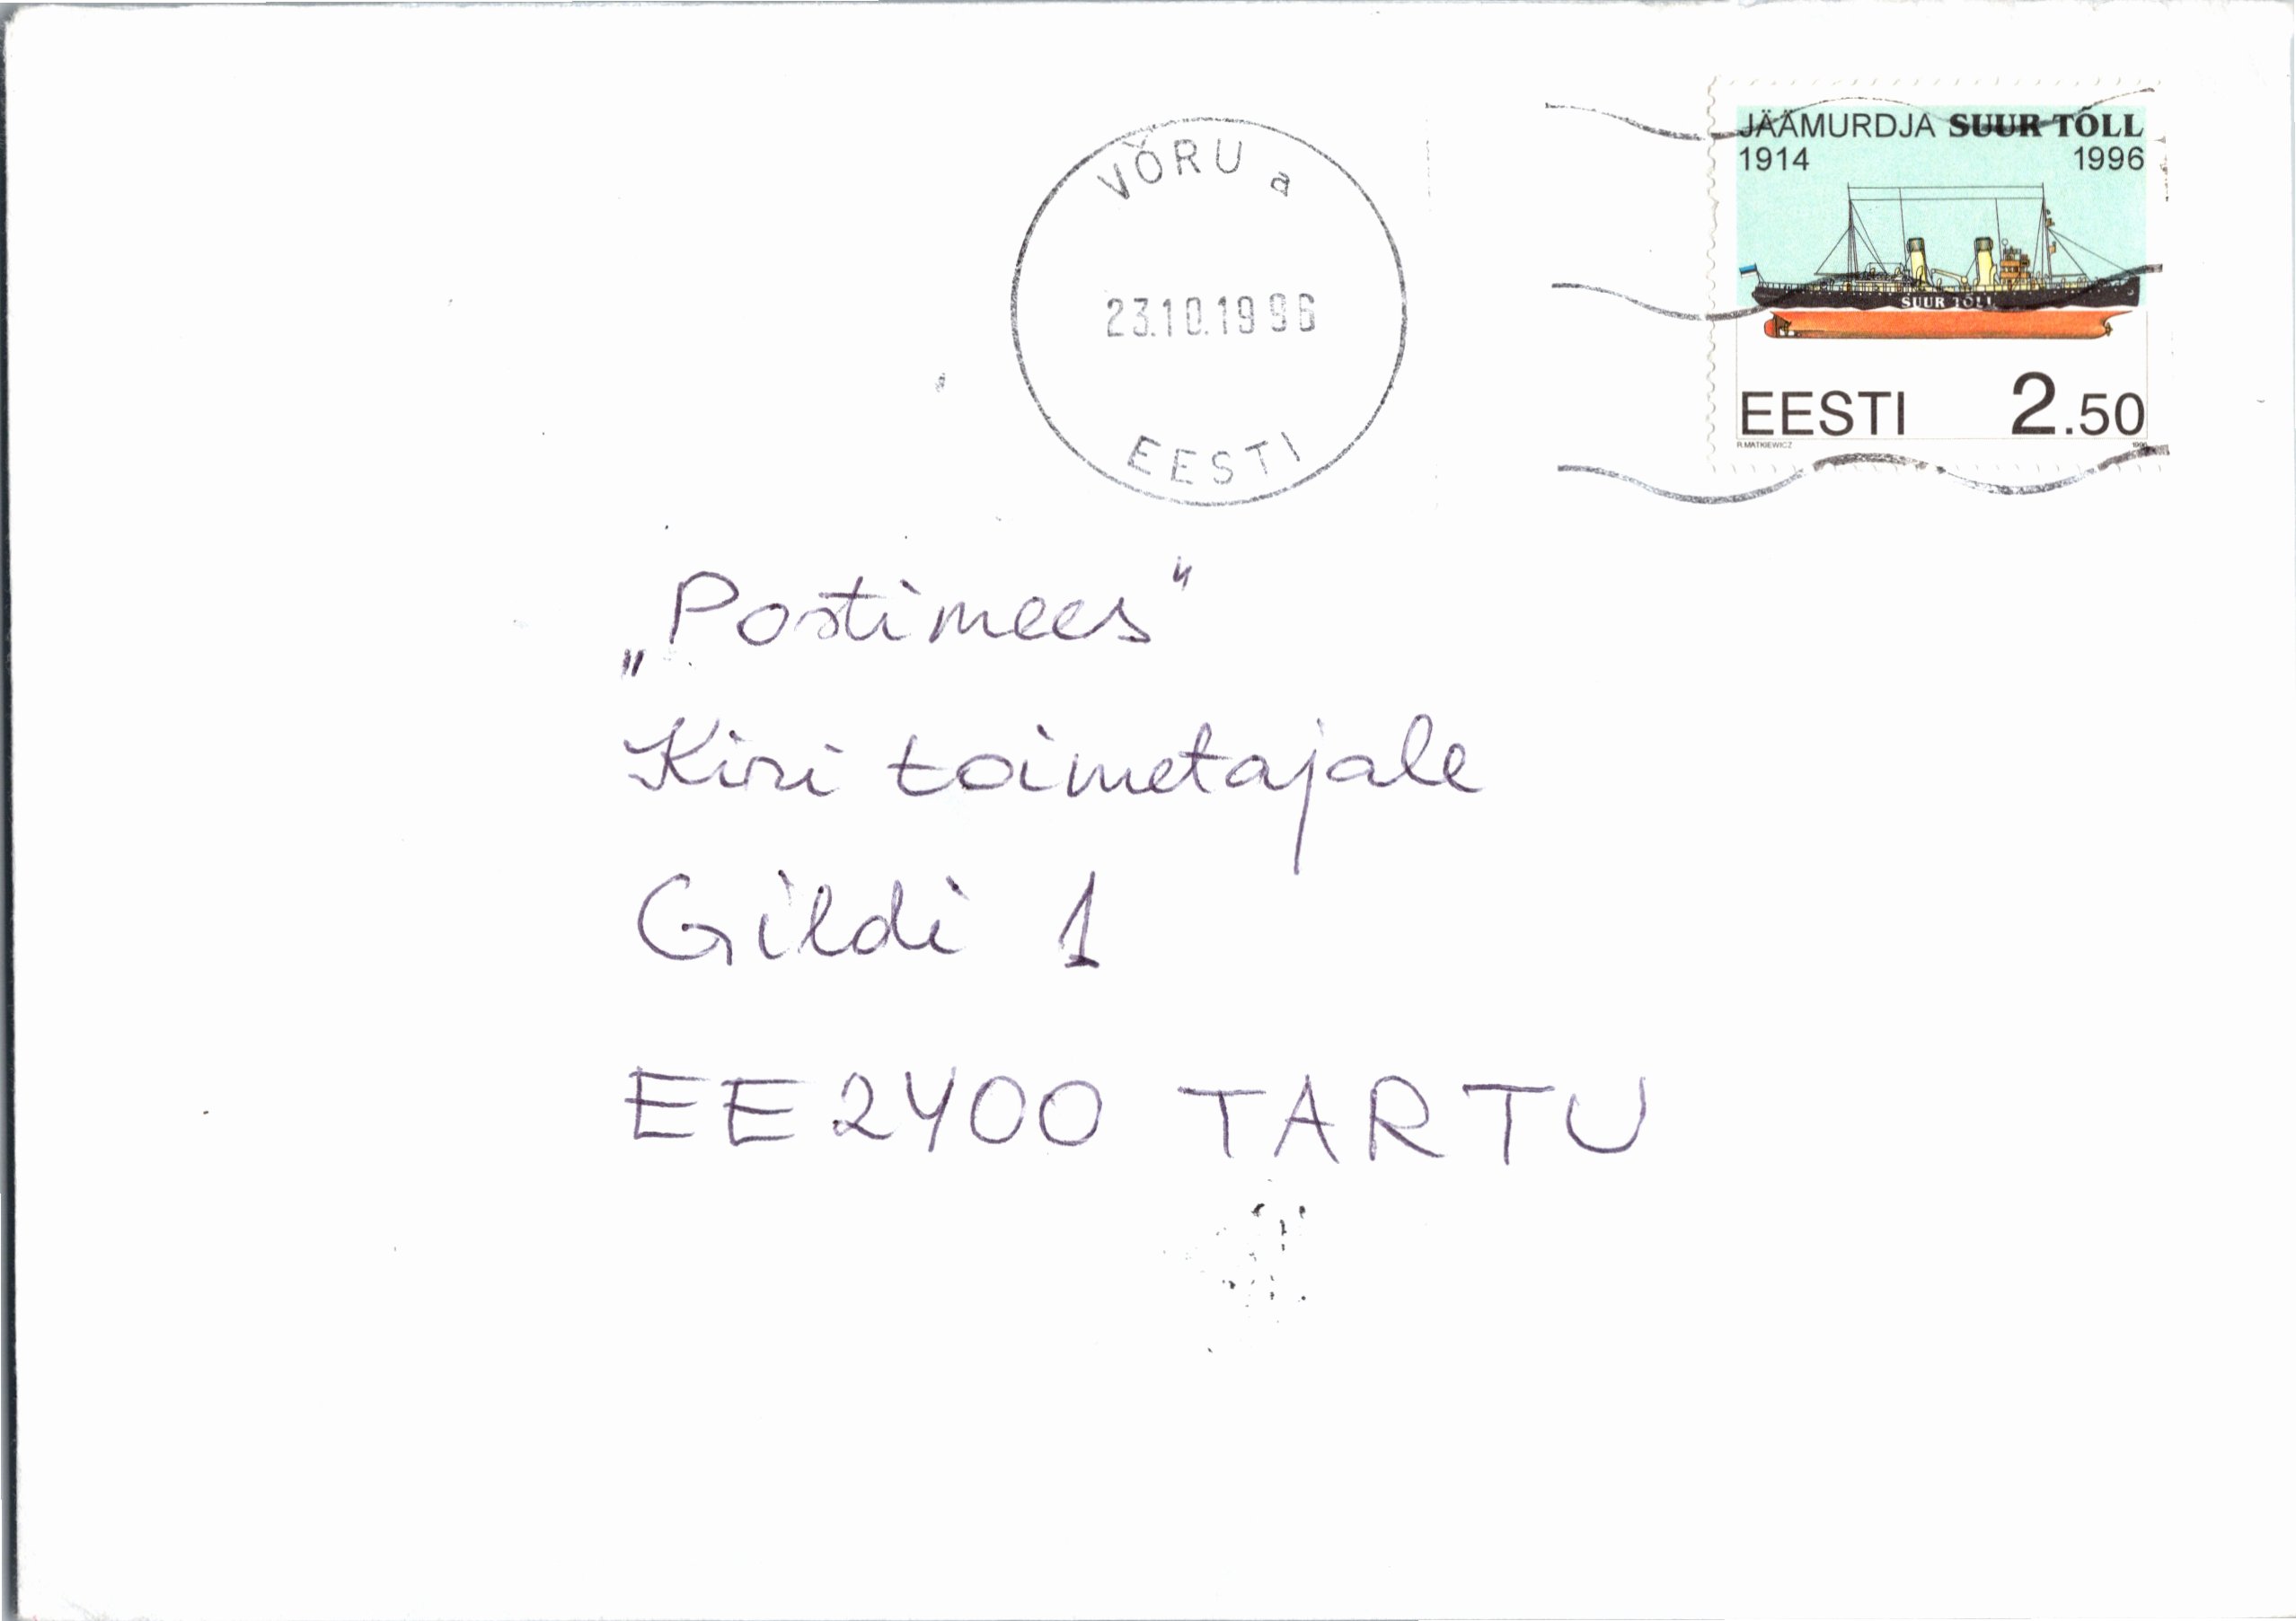 VÕRU a
23.10.1996
EESTI
JÄÄMURDJA SUUR TÕLL
1914 1996
SUUR TÕLL
EESTI 2.50
R.MATKIEWICZ 1996
„Postimees"
Kiri toimetajale
Gildi 1
EE2400 TARTU